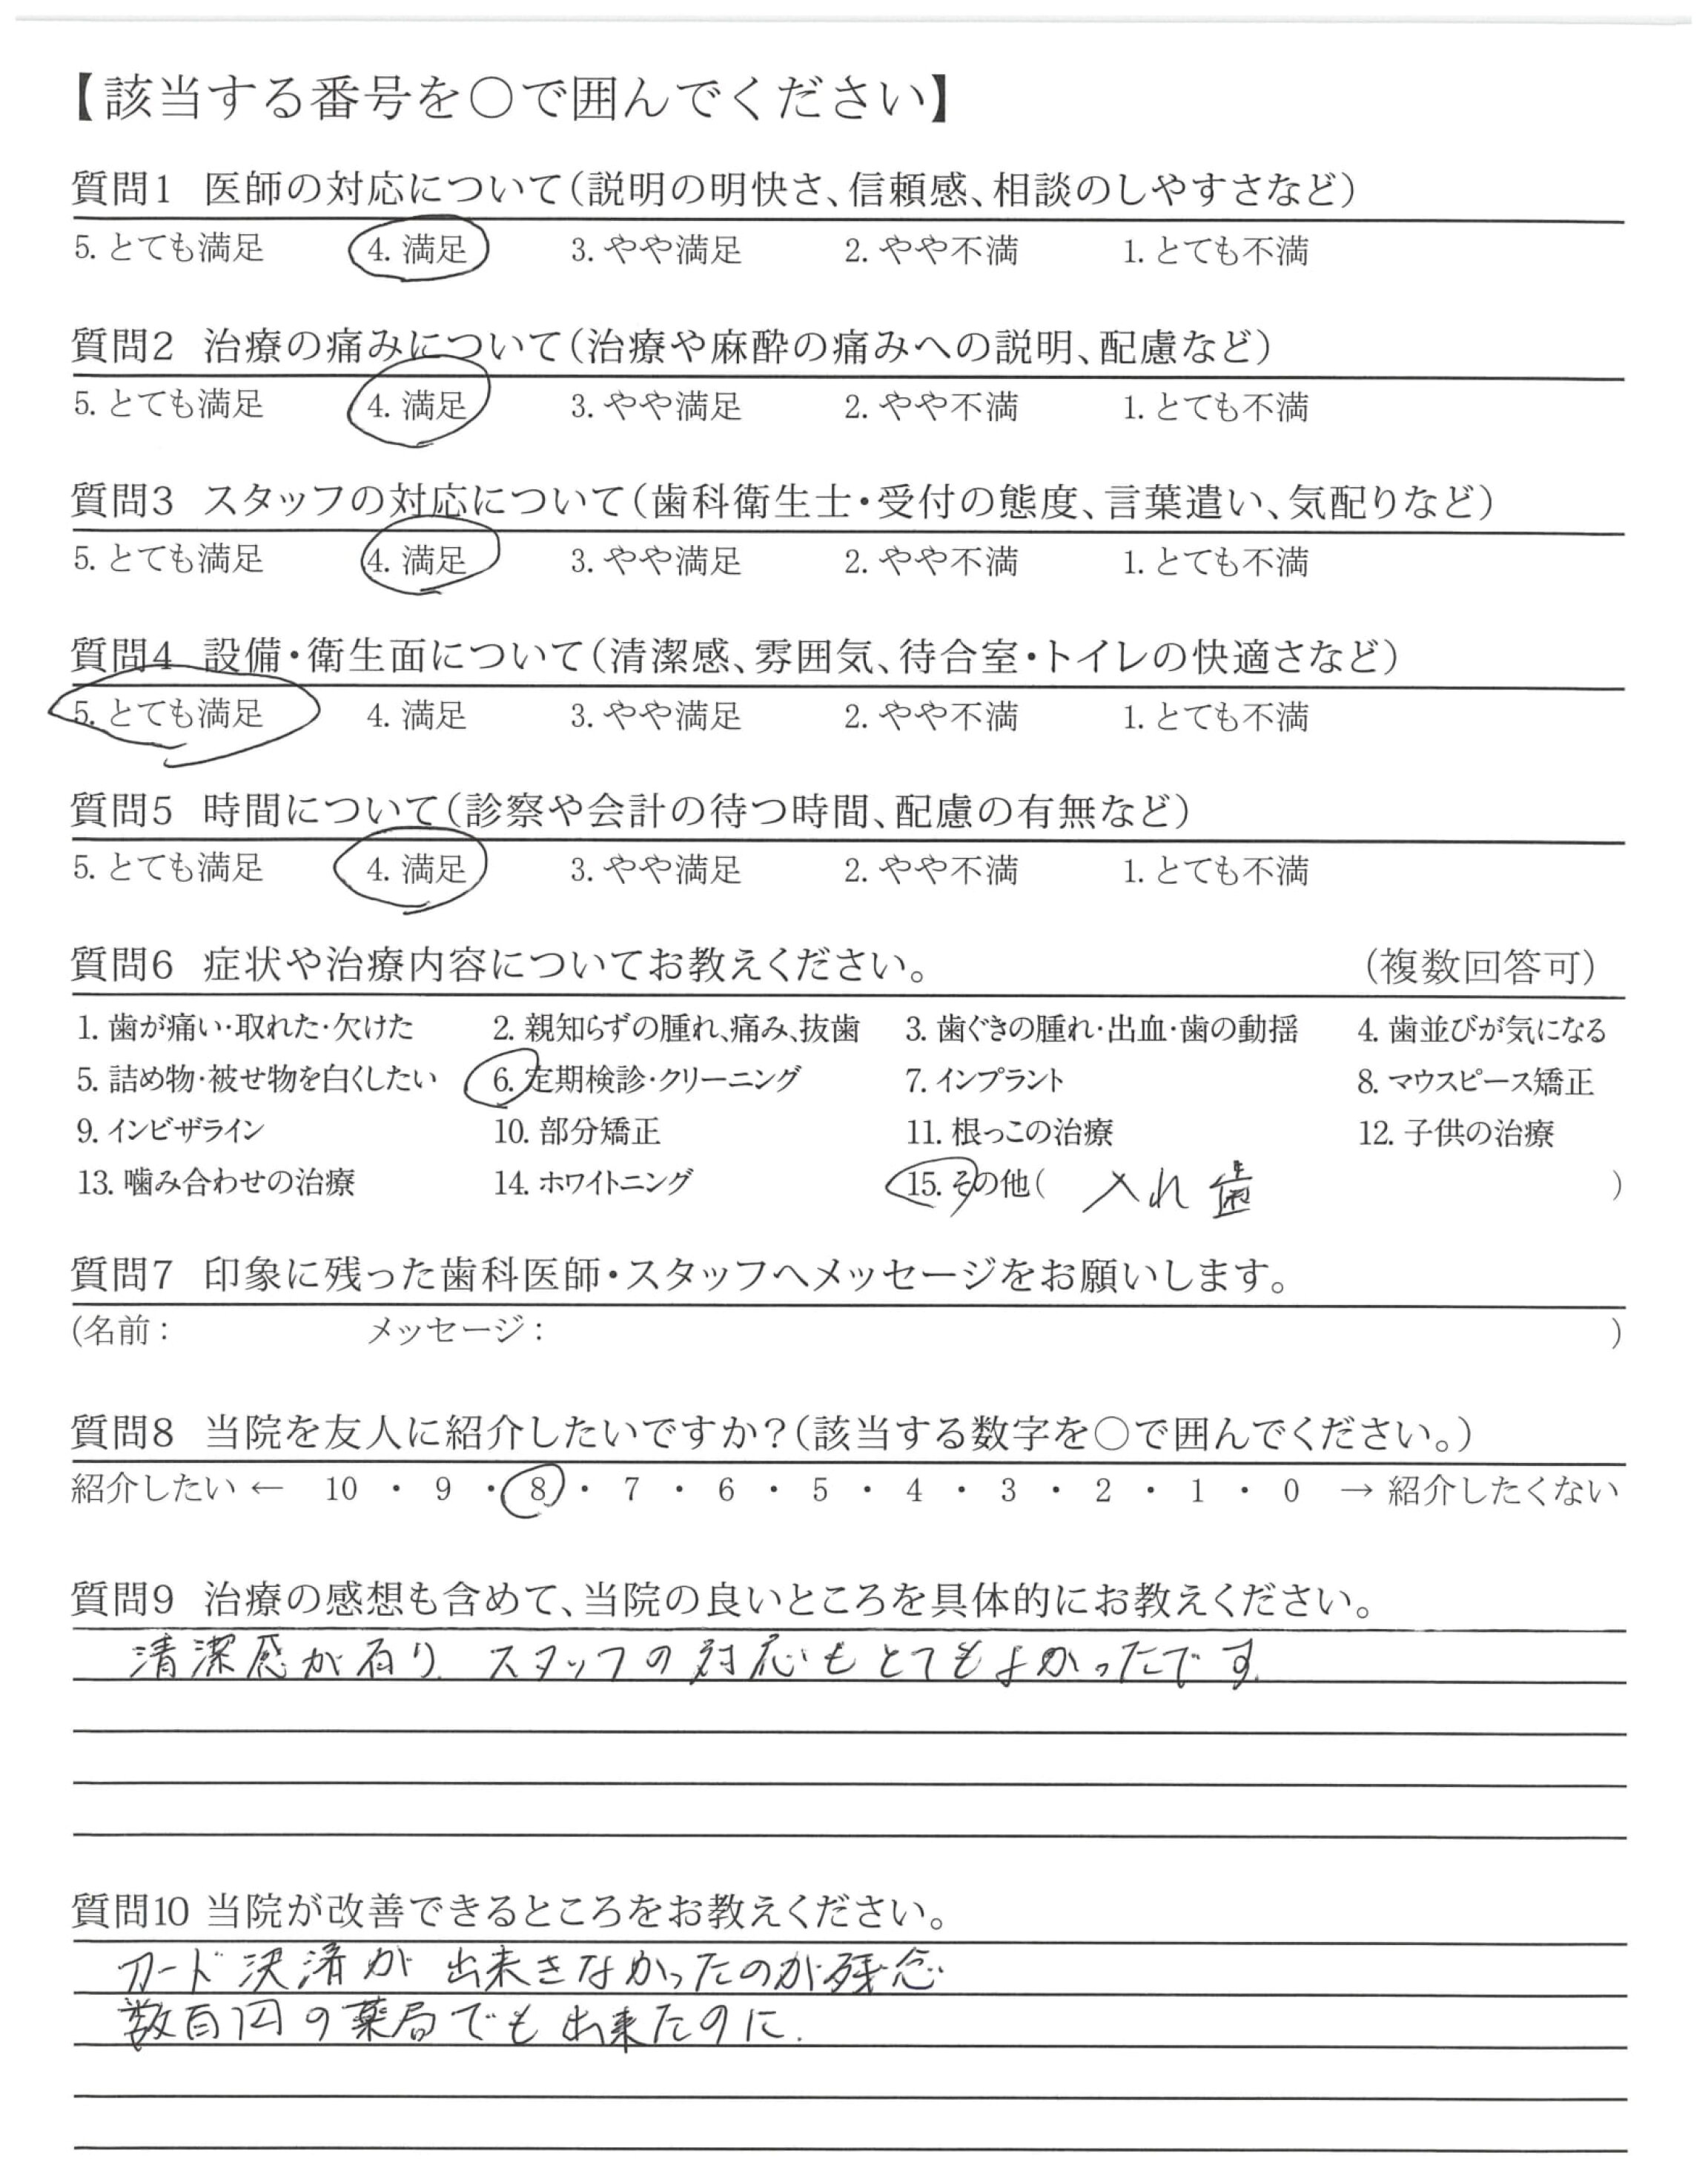 【該当する番号を○で囲んでください】
質問1 医師の対応について(説明の明快さ、信頼感、相談のしやすさなど)
5. とても満足 4. 満足 3. やや満足 2. やや不満 1. とても不満
質問2 治療の痛みについて(治療や麻酔の痛みへの説明、配慮など)
5. とても満足 4. 満足 3. やや満足 2. やや不満 1. とても不満
質問3 スタッフの対応について(歯科衛生士・受付の態度、言葉遣い、気配りなど)
5. とても満足 4. 満足 3. やや満足 2. やや不満 1. とても不満
質問4 設備・衛生面について(清潔感、雰囲気、待合室・トイレの快適さなど)
5. とても満足 4. 満足 3. やや満足 2. やや不満 1. とても不満
質問5 時間について(診察や会計の待つ時間、配慮の有無など)
5. とても満足 4. 満足 3. やや満足 2. やや不満 1. とても不満
質問6 症状や治療内容についてお教えください。 (複数回答可)
1. 歯が痛い・取れた・欠けた 2. 親知らずの腫れ、痛み、抜歯 3. 歯ぐきの腫れ・出血・歯の動揺 4. 歯並びが気になる
5. 詰め物・被せ物を白くしたい 6. 定期検診・クリーニング 7. インプラント 8. マウスピース矯正
9. インビザライン 10. 部分矯正 11. 根っこの治療 12. 子供の治療
13. 噛み合わせの治療 14. ホワイトニング 15. その他( 入れ歯 )
質問7 印象に残った歯科医師・スタッフへメッセージをお願いします。
(名前: メッセージ: )
質問8 当院を友人に紹介したいですか?(該当する数字を○で囲んでください。)
紹介したい ← 10 ・ 9 ・ 8 ・ 7 ・ 6 ・ 5 ・ 4 ・ 3 ・ 2 ・ 1 ・ 0 → 紹介したくない
質問9 治療の感想も含めて、当院の良いところを具体的にお教えください。
清潔感が有り、スタッフの対応もとてもよかったです。
質問10 当院が改善できるところをお教えください。
カード決済が出来きなかったのが残念
数百円の薬局でも出来たのに.